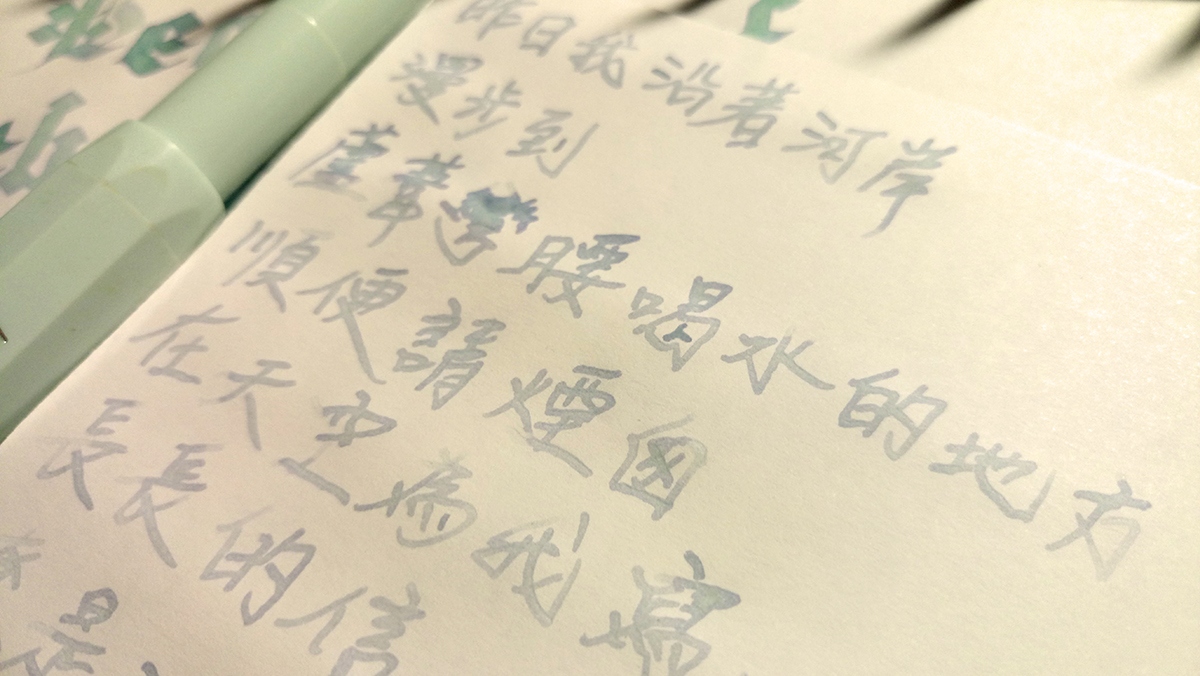 昨日我沿著河岸
漫步到
蘆葦彎腰喝水的地方
順便請煙囪
在天空為我寫
長長的信
是